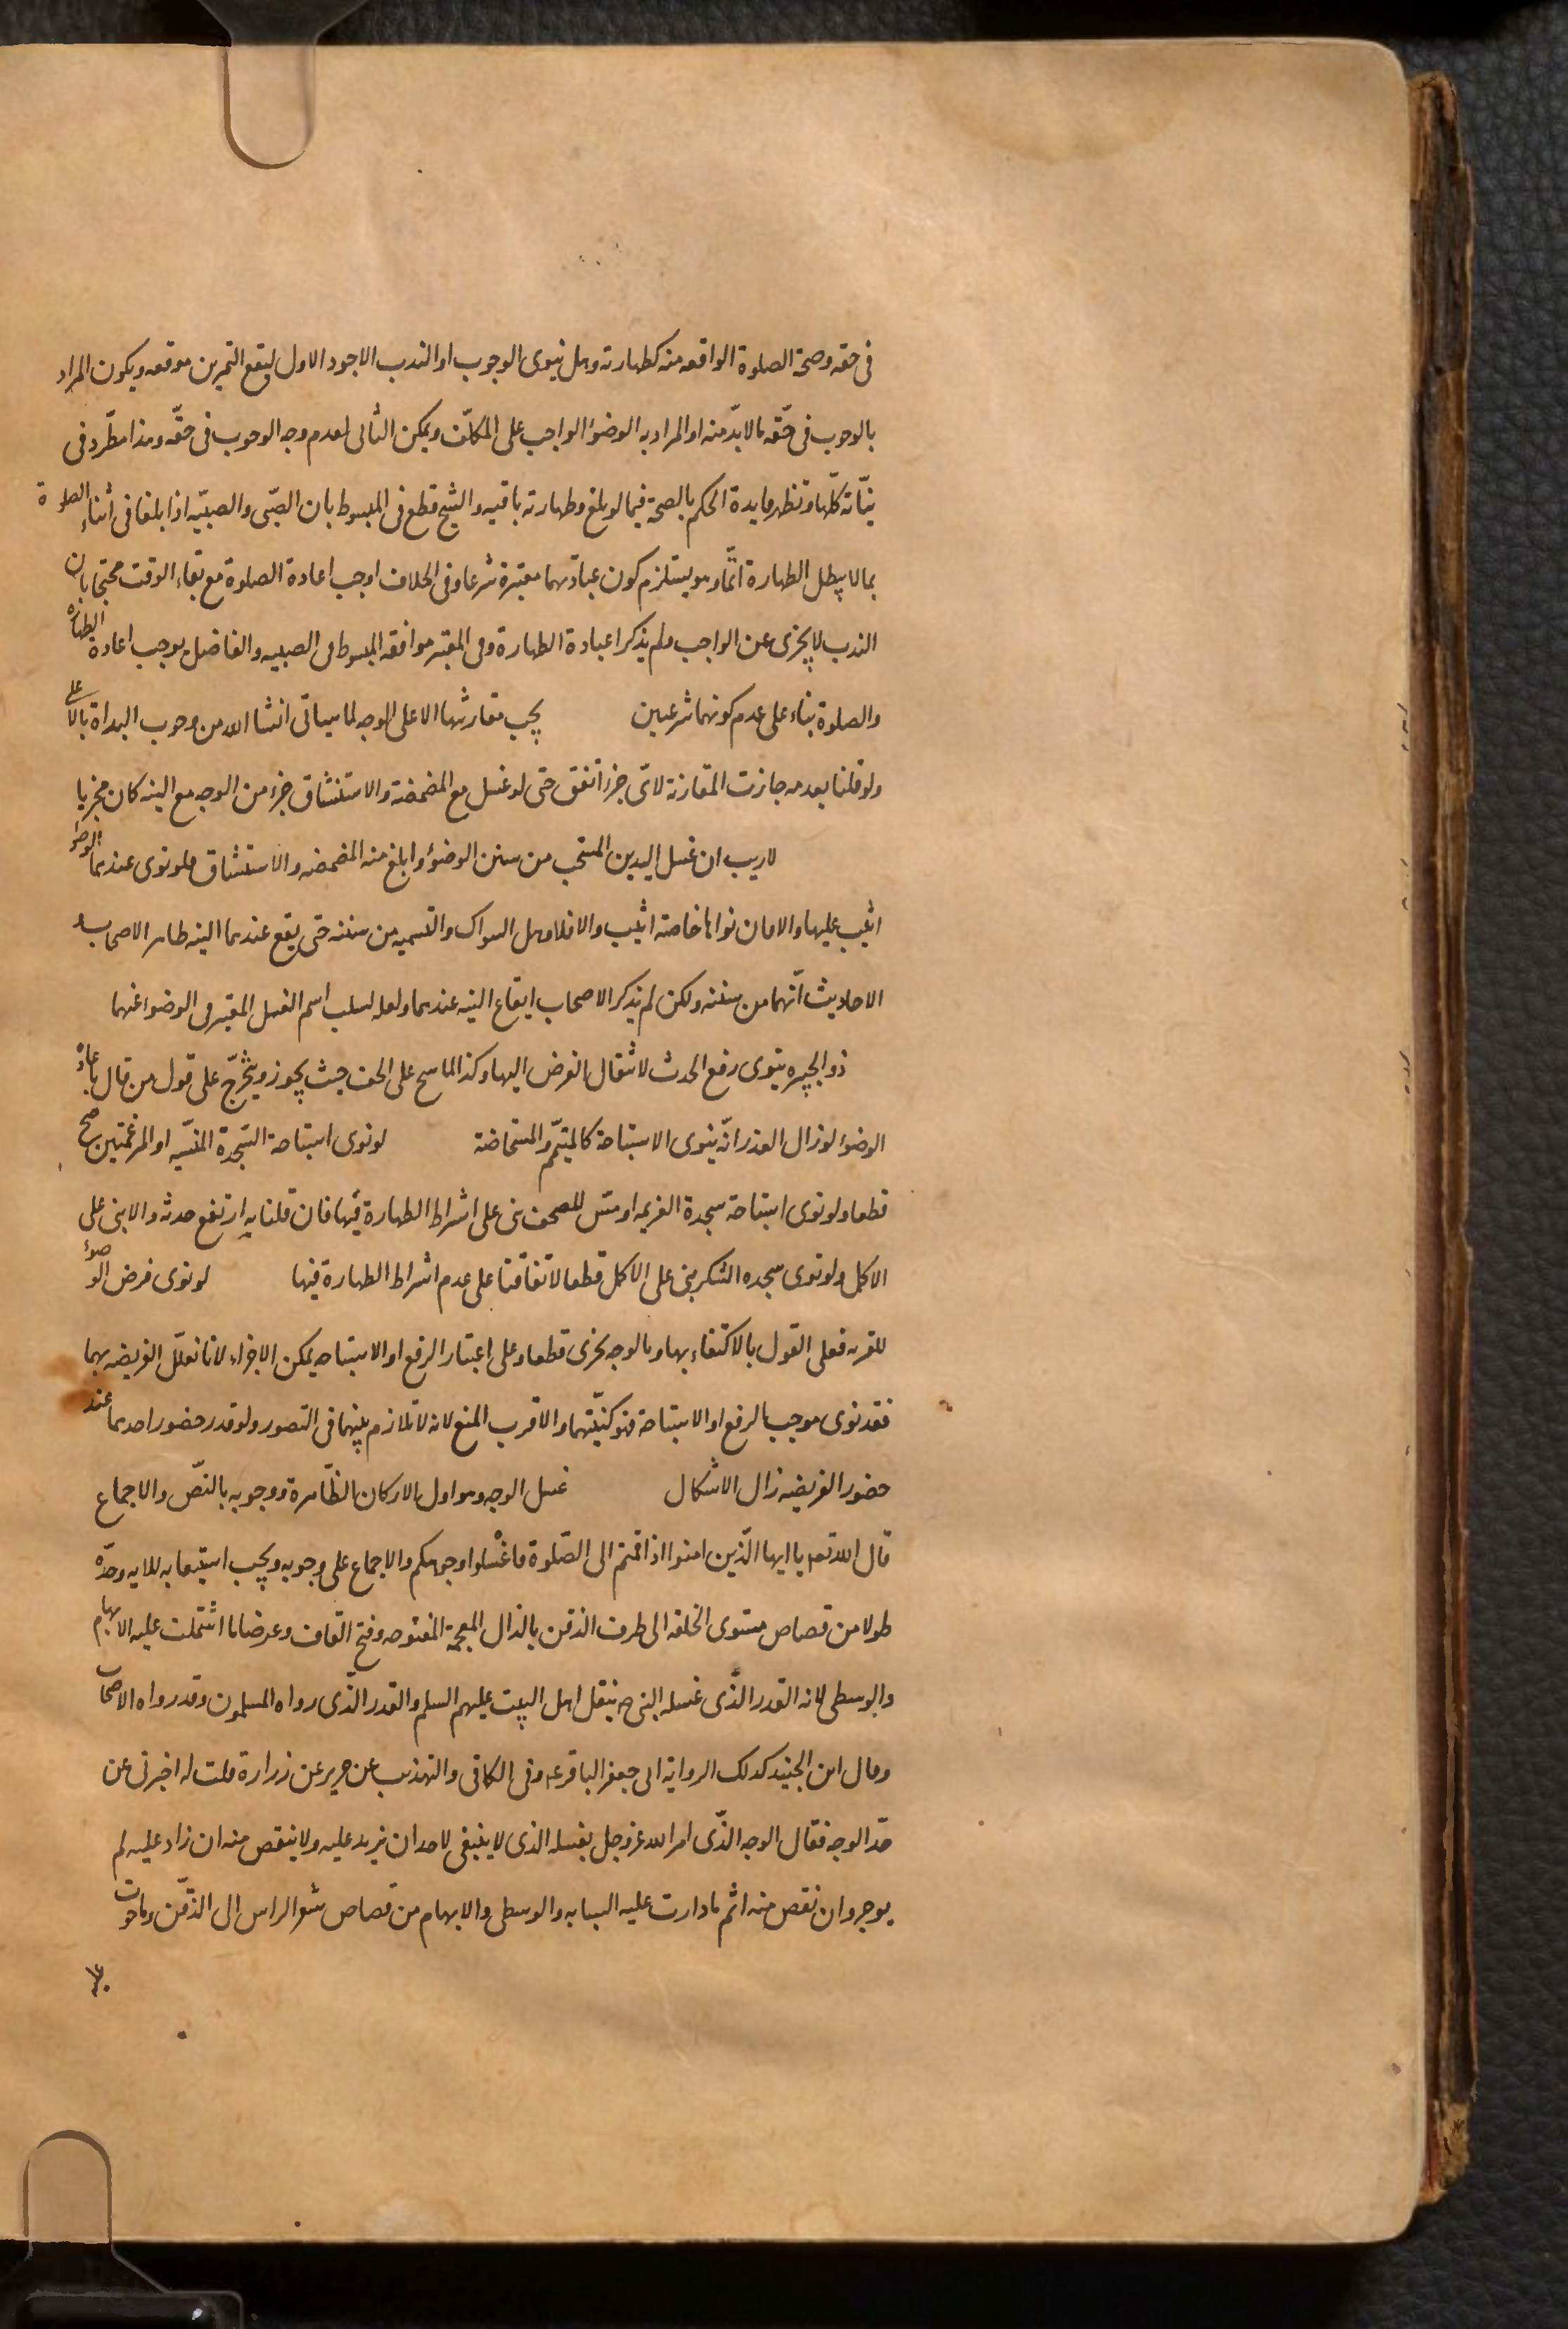 فى حقه وصحة الصلوة الواقعه منه كطهارته وهل ينوى الوجوب او الندب الاجود الاول ليقع التمرين موقعه ويكون المراد
بالوجوب فى حقّه ما لابدّ منه او المراد به الوضوٴ الواجب على المكلّف ويمكن الثانى لعدم وجه الوجوب فى حقّه وهذا مطّرد فى
نيّاته كلّها وتظهر فايدة الحكم بالصحة فيما لو بلغ وطهارته باقيه والشيخ قطع فى المبسوط بان الصّبى والصبيّه اذا بلغا فى أثناء الصلوة
بما لا يبطل الطهارة اتمّا وهو يستلزم كون عبادتهما معتبرة شرعا وفى الخلاف اوجب اعادة الصلوة مع بقاء الوقت محتجا بان
الندب لا يجزى عن الواجب ولم يذكر اعادة الطهارة وفى المعتبر موافقه المبسوط فى الصبيه والفاضل يوجب اعادة الطهارة
والصلوة بناء على عدم كونهما شرعيين يجب مقارنتها الاعلى الوجه لما سياتى انشا الله من وجوب البداة بالاعلى
ولو قلنا بعدمه جازت المقارنة لاىّ جزء اتفق حتى لو غسل مع المضمضة والاستنشاق جزء من الوجه مع النيه كان مجزيا
لاريب ان غسل اليدين المستحب من سنن الوضوٴ وابلغ منه المضمضه والاستنشاق فلو نوى عندهما الوضوٴ
اثيب عليها والا فان نواها خاصة اثيب والا فلا وهل السواك والتسميه من سننه حتى يقع عندهما النيه ظاهر الاصحاب و
الاحاديث انّهما من سننه ولكن لم يذكر الاصحاب ايقاع النيه عندهما ولعله لسلب اسم الغسل المعتبر فى الوضوء عنهما
ذو الجبيره ينوى رفع الحدث لانتقال الفرض اليها وكذا الماسح على الخف حيث يجوز ويتخرّج على قول من قال باعادة
الوضوٴ لو زال العذر انّه ينوى الاستباحة كالمتيمّم والمستحاضة لو نوى استباحة السّجدة المنسّيه او المرغمتين صح
قطعا ولو نوى استباحة سجدة العزيمه او مسّ المصحف بنى على اشتراط الطهارة فيها فان قلنا به ارتفع حدثه والا بنى على
الاكل ولو نوى سجده الشكر بنى على الاكل قطعا لاتفاقنا على عدم اشتراط الطهارة فيها لو نوى فرض الوضوٴ
للقربه فعلى القول بالاكتفاء بها وبالوجه يجزى قطعا وعلى اعتبار الرفع او الاستباحه يمكن الاجزاء لانا نعلّل الفريضه بهما
فقد نوى موجب الرفع او الاستباحة فهو كنيّتهما والاقرب المنع لانه لا تلازم بينهما فى التصور ولو قدر حضور احدهما عند
حضور الفريضه زال الاشكال غسل الوجه وهو اول الاركان الظّاهرة ووجوبه بالنّص والاجماع
قال الله تعه يا ايها الّذين امنوا اذا قمتم الى الصّلوة فاغْسلوا وجوهكم والاجماع على وجوبه ويجب استيعابه للايه وحدّه
طولا من قصاص مستوى الخلقه الى طرف الذقن بالذال المعجمة المفتوحه وفتح القاف وعرضا ما اشتملت عليه الابهام
والوسطى لانه القدر الّذى غسله النبى صه بنقل اهل البيت عليهم السلم والقدر الّذى رواه المسلمون وقد رواه الاصحاب
وقال ابن الجنيد كذلك الرواية الى جعفر الباقر عه وفى الكافى والتهذيب عن حريز عن زرارة قلت له اخبرنى عن
حدّ الوجه فقال الوجه الذّى امر الله عز وجل بغسله الذى لا ينبغى لاحد ان يزيد عليه ولا ينقص منه ان زاد عليه لم
يوجر وان نقص منه اثم ما دارت عليه السبابه والوسطى والابهام من قصاص شعر الراس الى الذّقن وما حوت
عليه